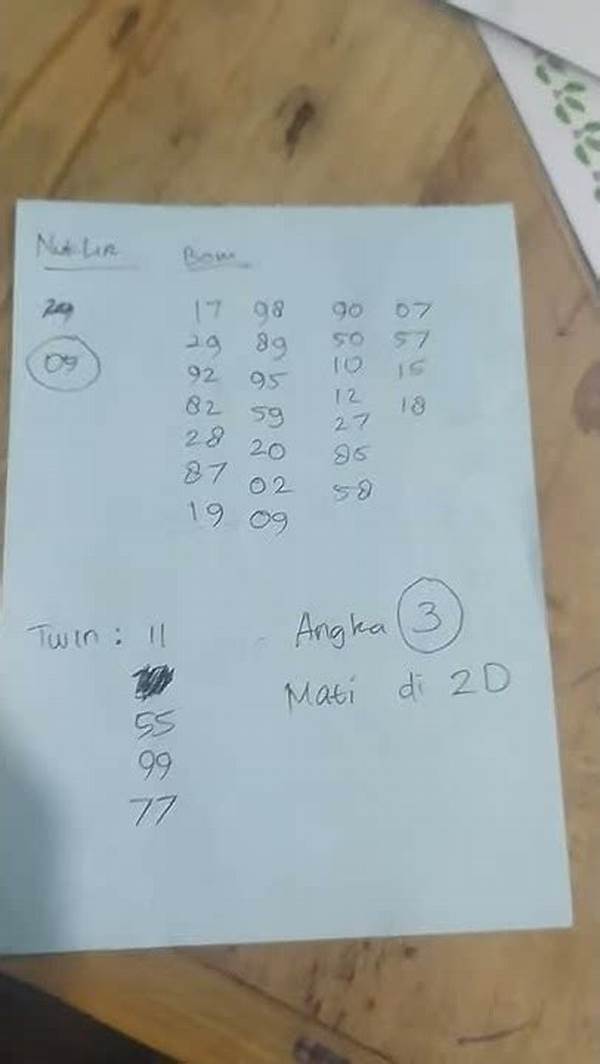 Nuklir Bom
17 98 90 07
09 29 89 50 57
92 95 10 15
82 59 12 18
28 20 27
87 02 85
19 09 58
Twin : 11
55
99
77
Angka 3
Mati di 2D